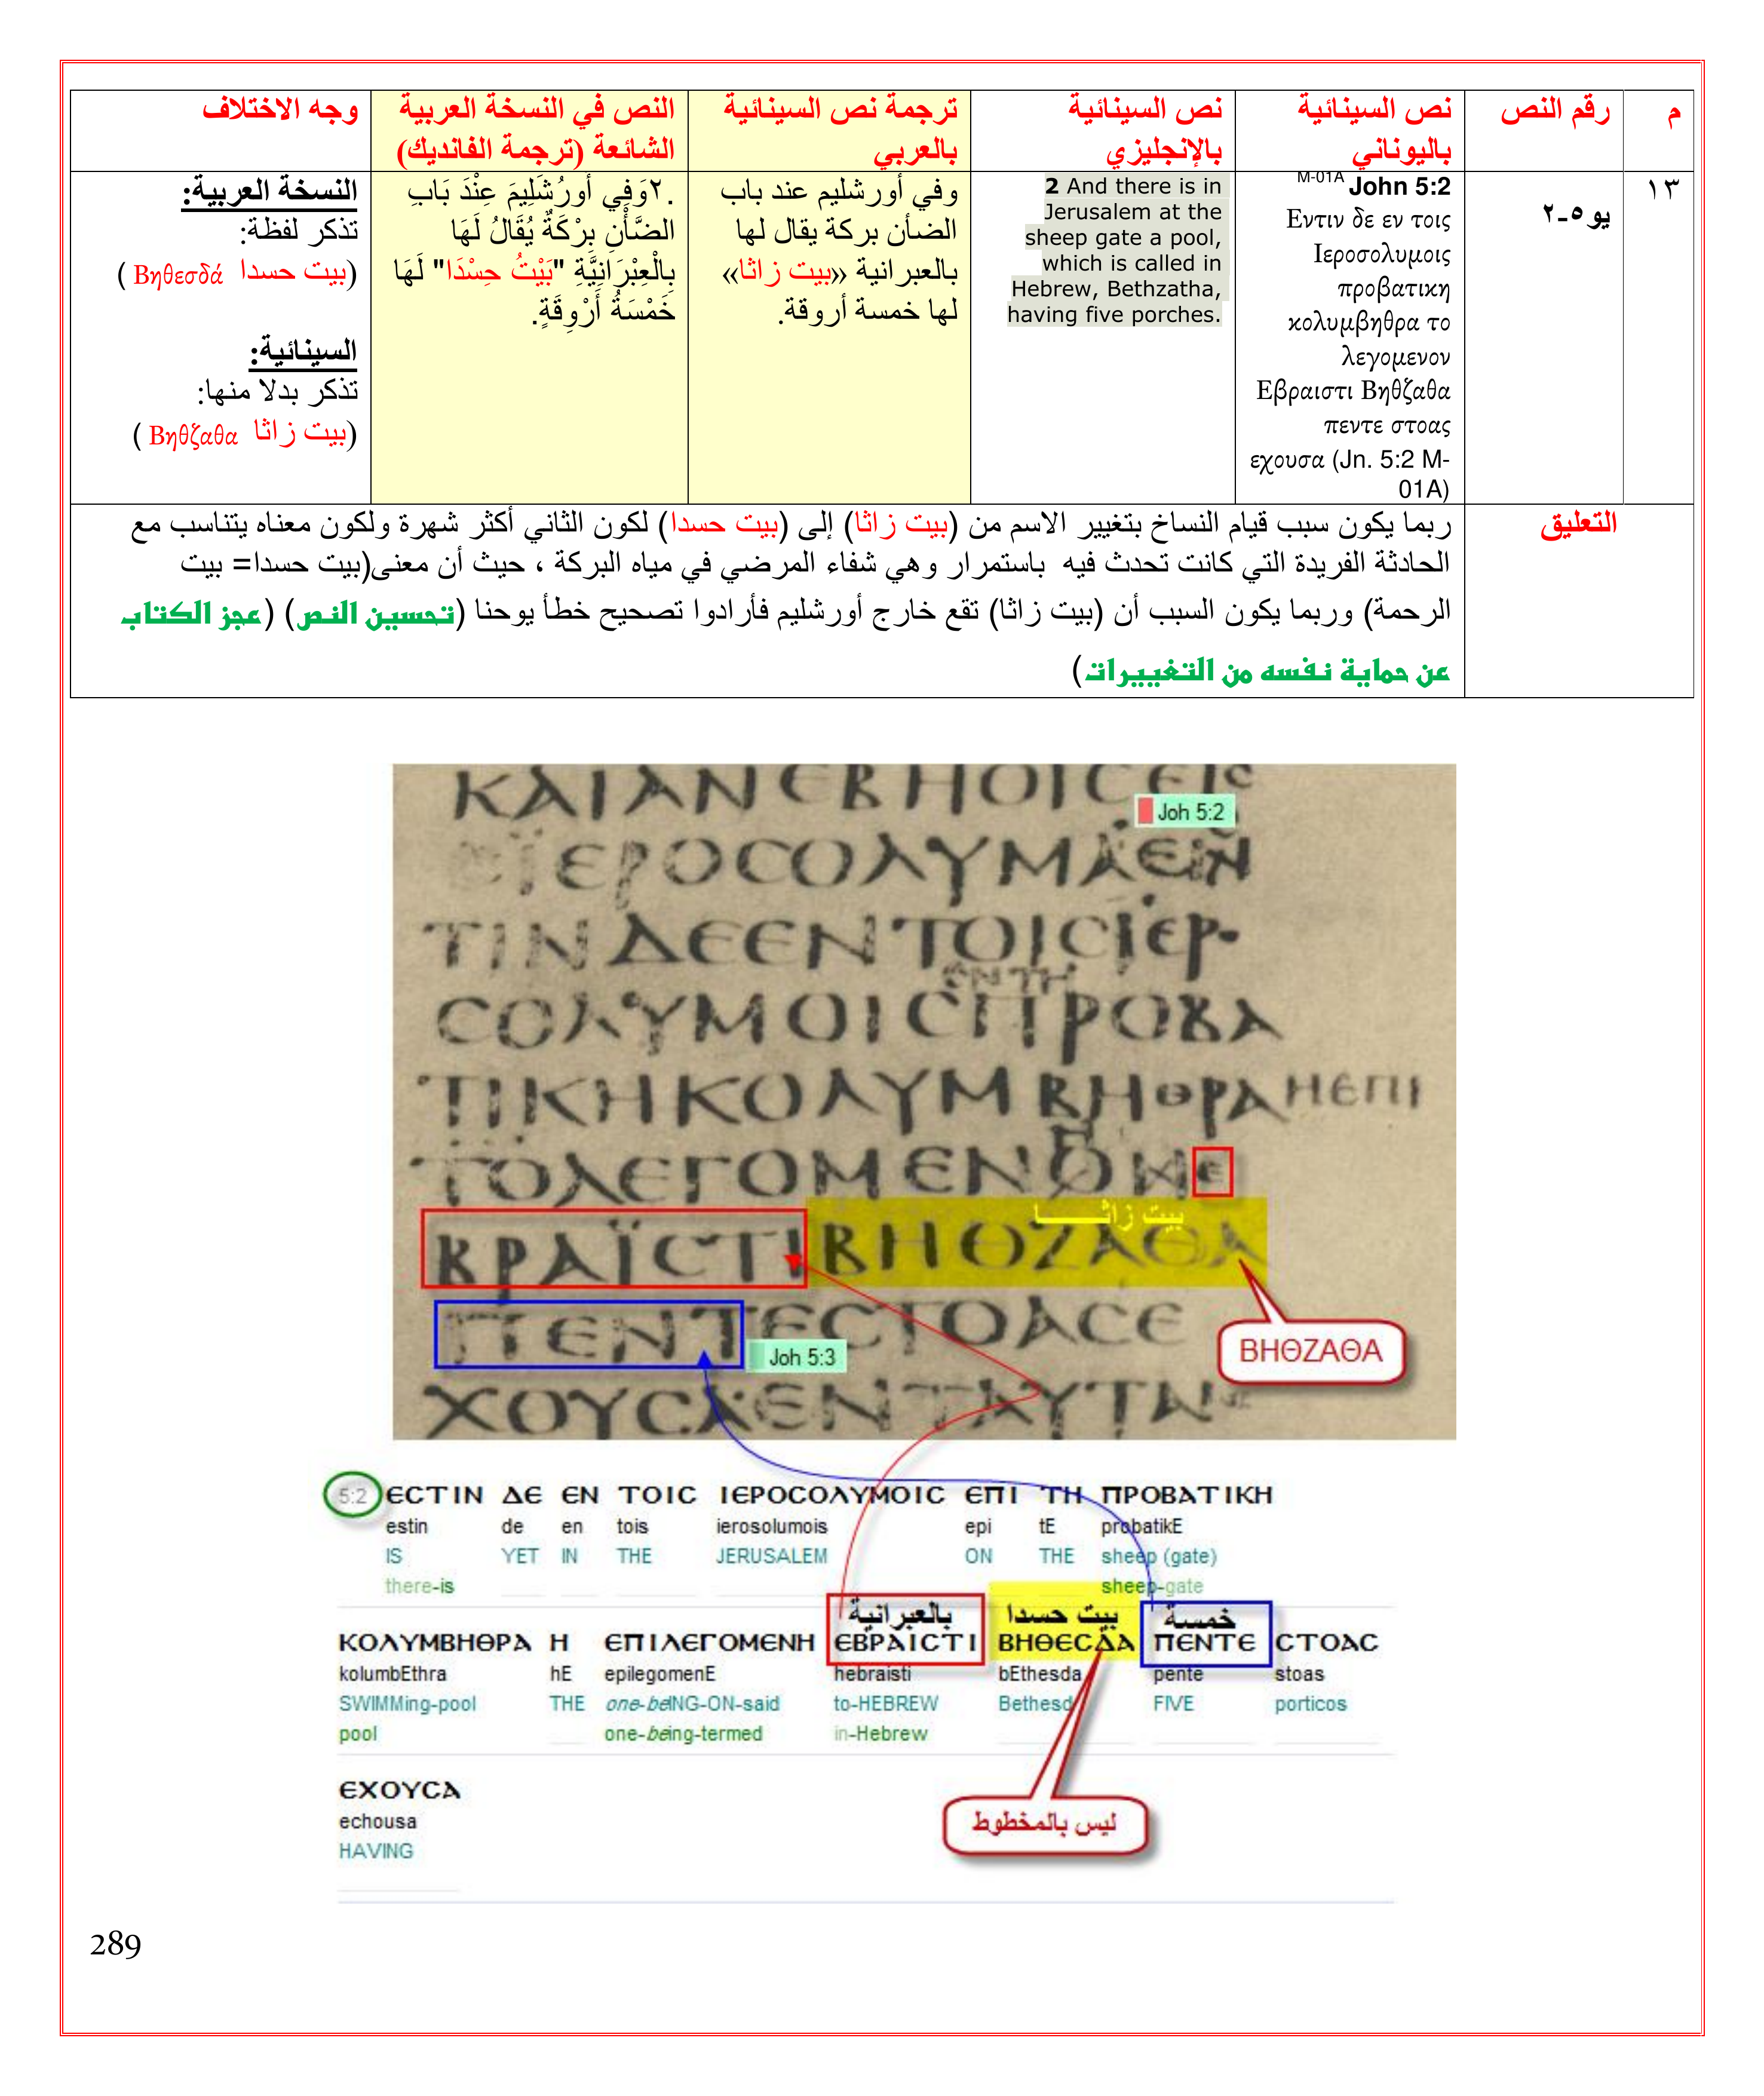 م
رقم النص
نص السينائية
باليوناني
نص السينائية
بالإنجليزي
ترجمة نص السينائية
بالعربي
النص في النسخة العربية
الشائعة (ترجمة الفانديك)
وجه الاختلاف
١٣
يو ٥-٢
M-01A John 5:2
Εντιν δε εν τοις
Ιεροσολυμοις
προβατικη
κολυμβηθρα το
λεγομενον
Εβραιστι Βηθζαθα
πεντε στοας
εχουσα (Jn. 5:2 M-
01A)
2 And there is in
Jerusalem at the
sheep gate a pool,
which is called in
Hebrew, Bethzatha,
having five porches.
وفي أورشليم عند باب
الضأن بركة يقال لها
بالعبرانية «بيت زاثا»
لها خمسة أروقة.
.٢وَفِي أُورُشَلِيمَ عِنْدَ بَابِ
الضَّأْنِ بِرْكَةٌ يُقَالُ لَهَا
بِالْعِبْرَانِيَّةِ "بَيْتُ حِسْدَا" لَهَا
خَمْسَةُ أَرْوِقَةٍ.
النسخة العربية:
تذكر لفظة:
(بيت حسدا Βηθεσδά )
السينائية:
تذكر بدلا منها:
(بيت زاثا Βηθζαθα )
التعليق
ربما يكون سبب قيام النساخ بتغيير الاسم من (بيت زاثا) إلى (بيت حسدا) لكون الثاني أكثر شهرة ولكون معناه يتناسب مع
الحادثة الفريدة التي كانت تحدث فيه باستمرار وهي شفاء المرضي في مياه البركة ، حيث أن معنى(بيت حسدا= بيت
الرحمة) وربما يكون السبب أن (بيت زاثا) تقع خارج أورشليم فأرادوا تصحيح خطأ يوحنا (تحسين النص) (عجز الكتاب
عن حماية نفسه من التغييرات)
ΚΑΙΑΝΕΒΗΟΙϹΕΙϹ
Joh 5:2
ΪΕΡΟϹΟΛΥΜΑΕΝ
ΤΙΝΔΕΕΝΤΟΙϹΙΕΡ
ΕΝΤΗ
ϹΟΛΥΜΟΙϹΠΡΟΒΑ
ΤΙΚΗΚΟΛΥΜΒΗΘΡΑΗΕΠΙ
ΤΟΛΕΓΟΜΕΝΟΝΕ
بيت زاثـــــــا
ΒΡΑΪϹΤΙΒΗΘΖΑΘΑ
ΠΕΝΤΕϹΤΟΑϹΕ
ΒΗΘΖΑΘΑ
Joh 5:3
ΧΟΥϹΑΕΝΤΑΥΤΑΙ
5:2 ЄCTIN ΔЄ ЄN TOIC IЄPOCOΛYMOIC ЄΠI TH ΠPOBATIKH
estin de en tois ierosolumois epi tE probatikE
IS YET IN THE JERUSALEM ON THE sheep (gate)
there-is sheep-gate
بالعبرانية بيت حسدا خمسة
KOΛYMBHΘPA H ЄΠIΛЄΓOMЄNH ЄBPAICTI BHΘЄCΔA ΠЄNTЄ CTOAC
kolumbEthra hE epilegomenE hebraisti bEthesda pente stoas
SWIMMing-pool THE one-beING-ON-said to-HEBREW Bethesd FIVE porticos
pool one-being-termed in-Hebrew
ЄXOYCA
echousa
HAVING
ليس بالمخطوط
289